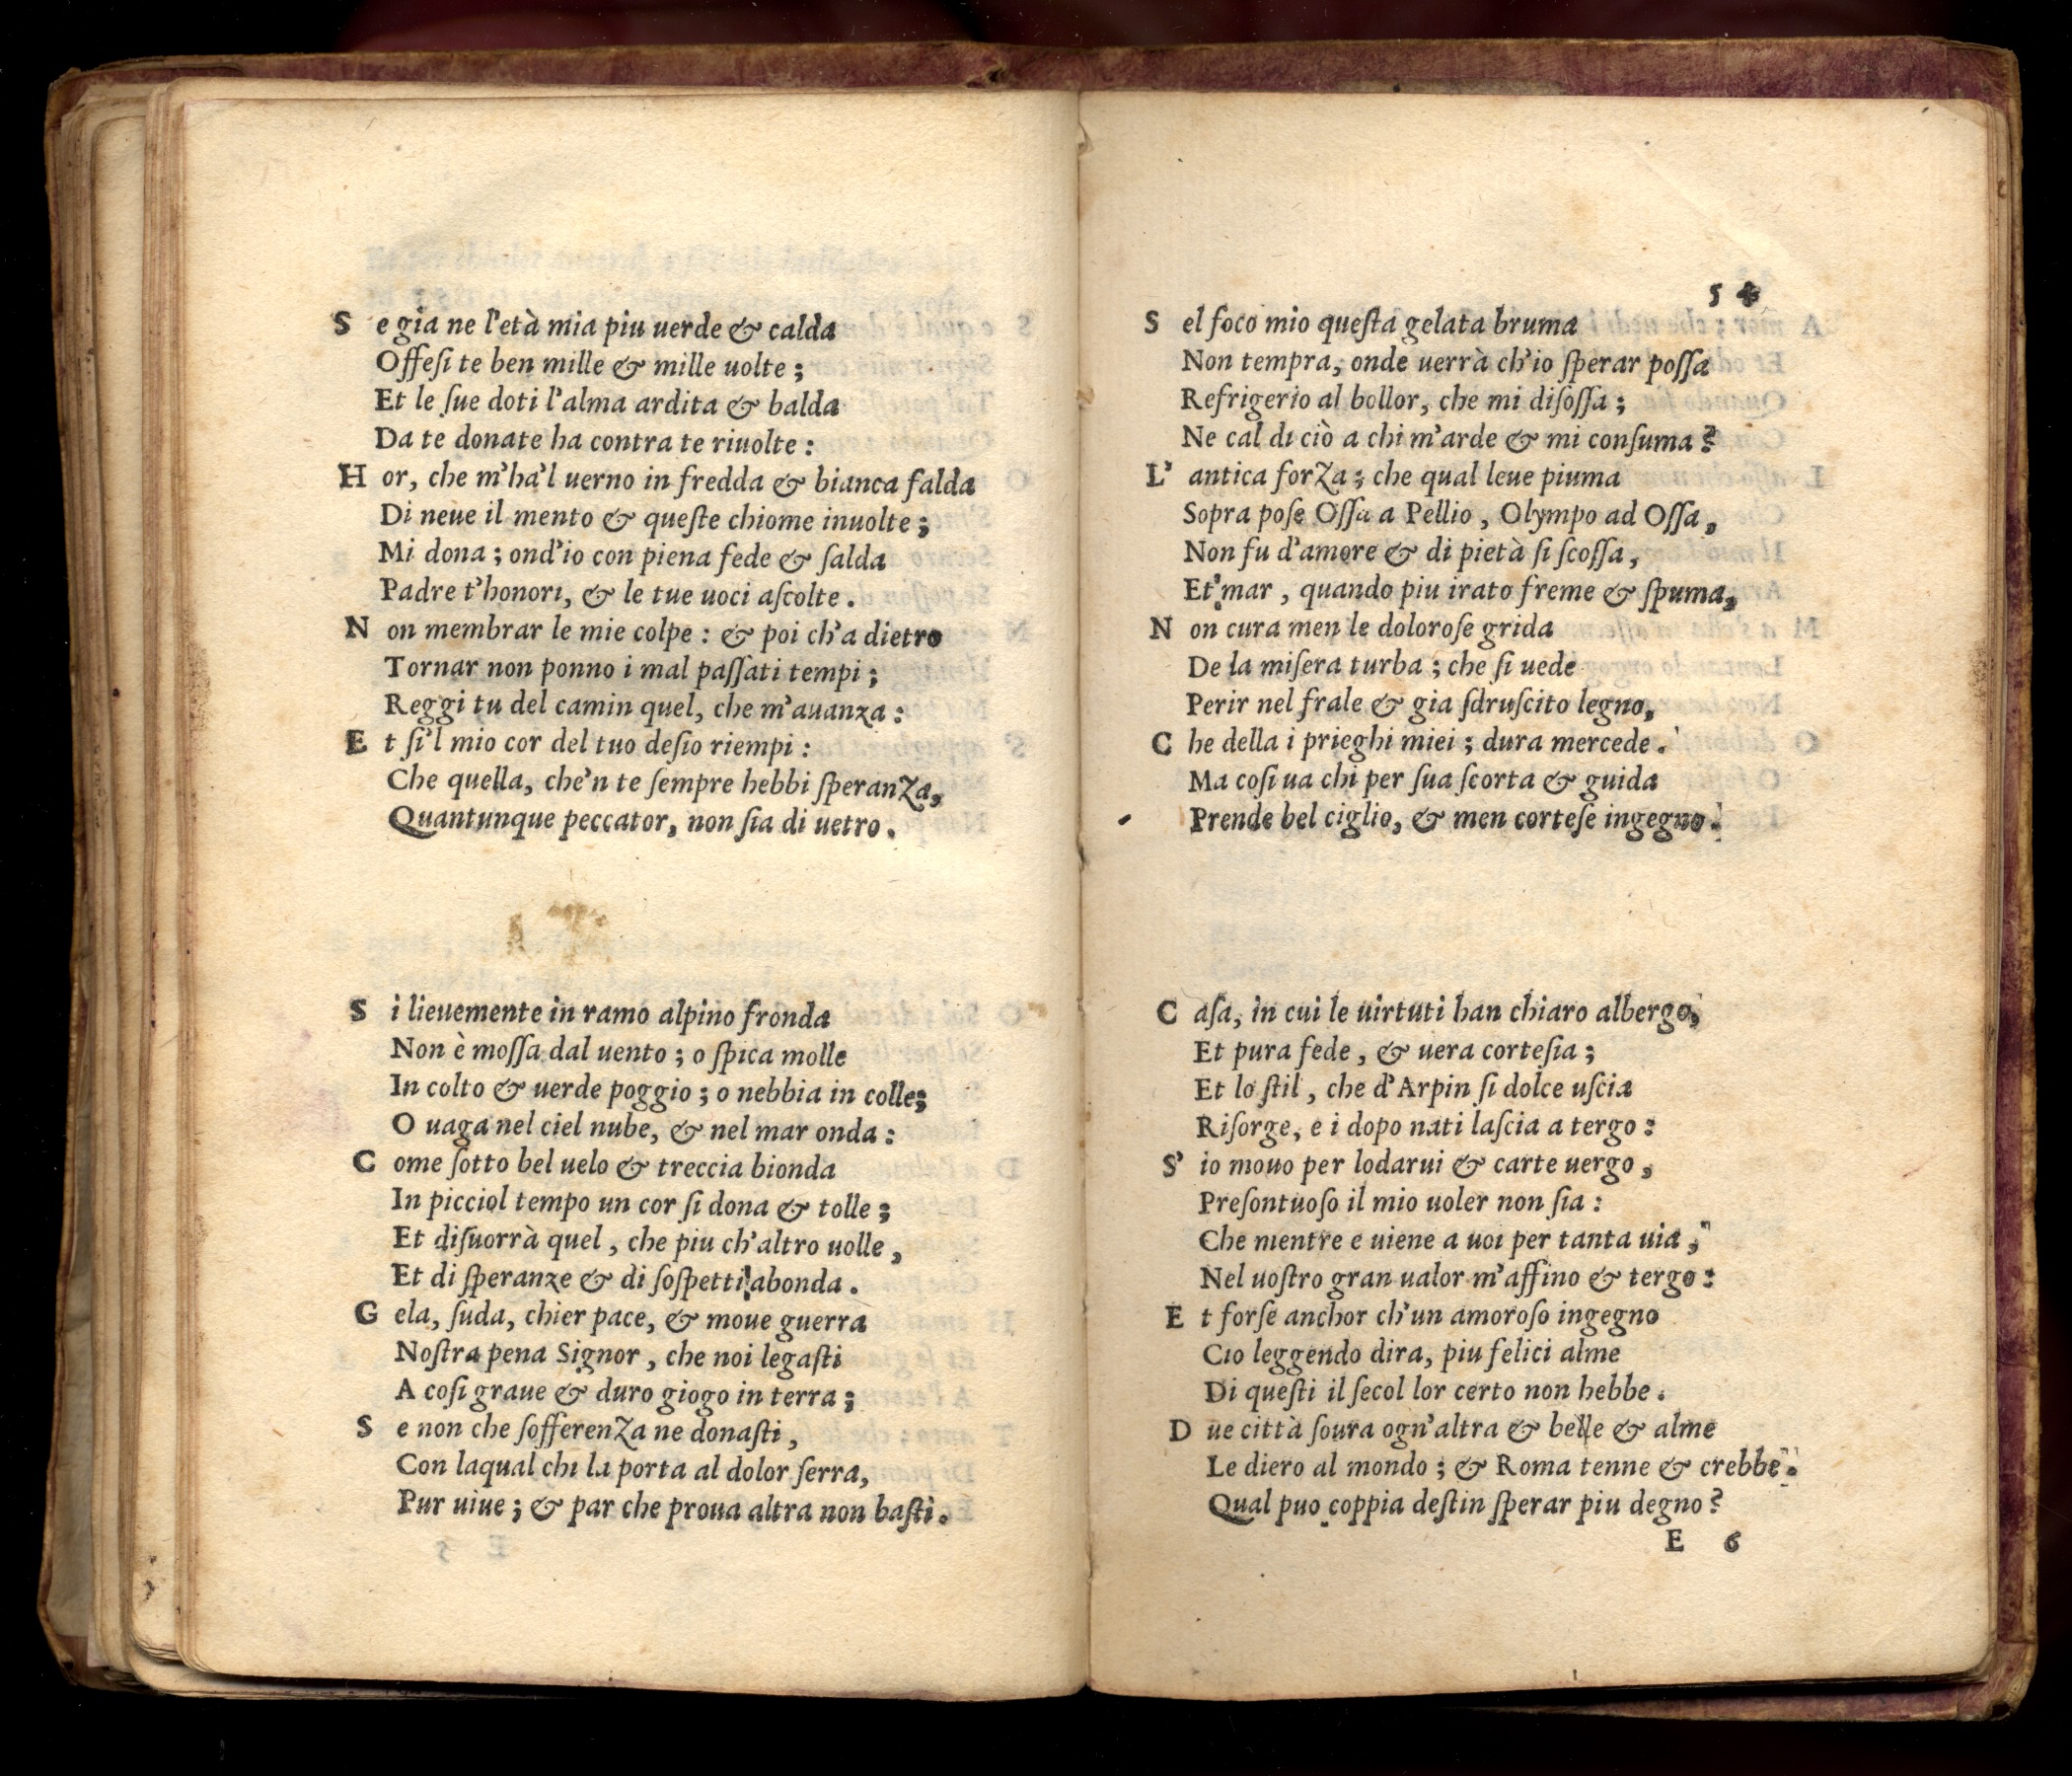 Se gia ne l'età mia piu uerde & calda
Offeſi te ben mille & mille uolte;
Et le ſue doti l'alma ardita & balda
Da te donate ha contra te riuolte:
Hor, che m'ha'l uerno in fredda & bianca falda
Di neue il mento & queſte chiome inuolte;
Mi dona; ond'io con piena fede & ſalda
Padre t'honori, & le tue uoci aſcolte.
Non membrar le mie colpe: & poi ch'a dietro
Tornar non ponno i mal paſſati tempi;
Reggi tu del camin quel, che m'auanza:
Et ſi'l mio cor del tuo deſio riempi:
Che quella, che'n te ſempre hebbi ſperanza,
Quantunque peccator, non ſia di uetro.
Si lieuemente in ramo alpino fronda
Non è moſſa dal uento; o ſpica molle
In colto & uerde poggio; o nebbia in colle;
O uaga nel ciel nube, & nel mar onda:
Come ſotto bel uelo & treccia bionda
In picciol tempo un cor ſi dona & tolle;
Et diſuorrà quel, che piu ch'altro uolle,
Et di ſperanze & di ſoſpetti abonda.
Gela, ſuda, chier pace, & moue guerra
Noſtra pena Signor, che noi legaſti
A coſi graue & duro giogo in terra;
Se non che ſofferenza ne donaſti,
Con laqual chi la porta al dolor ſerra,
Pur uiue; & par che proua altra non baſti.
54
Sel foco mio queſta gelata bruma
Non tempra, onde uerrà ch'io ſperar poſſa
Refrigerio al bollor, che mi diſoſſa;
Ne cal di ciò a chi m'arde & mi conſuma?
L'antica forza; che qual leue piuma
Sopra poſe Oſſa a Pellio, Olympo ad Oſſa,
Non fu d'amore & di pietà ſi ſcoſſa,
Et' mar, quando piu irato freme & ſpuma,
Non cura men le doloroſe grida
De la miſera turba; che ſi uede
Perir nel frale & gia ſdruſcito legno,
Che della i prieghi miei; dura mercede.
Ma coſi ua chi per ſua ſcorta & guida
Prende bel ciglio, & men corteſe ingegno.
Caſa, in cui le uirtuti han chiaro albergo,
Et pura fede, & uera corteſia;
Et lo ſtil, che d'Arpin ſi dolce uſcia
Riſorge, e i dopo nati laſcia a tergo:
S'io mouo per lodarui & carte uergo,
Preſontuoſo il mio uoler non ſia:
Che mentre e uiene a uoi per tanta uia,
Nel uoſtro gran ualor m'affino & tergo:
Et forſe anchor ch'un amoroſo ingegno
Cio leggendo dira, piu felici alme
Di queſti il ſecol lor certo non hebbe.
Due città ſoura ogn'altra & belle & alme
Le diero al mondo; & Roma tenne & crebbe.
Qual puo coppia deſtin ſperar piu degno?
E 6